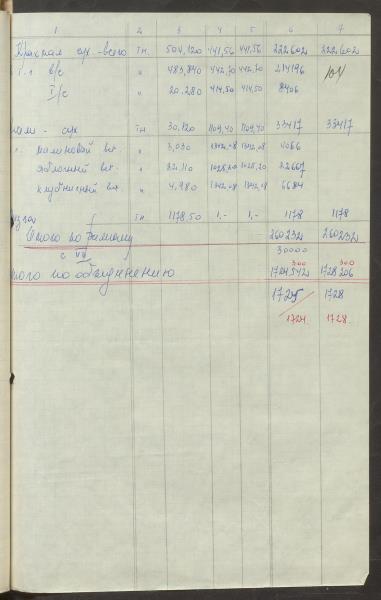 1 2 3 4 5 6 7
Крахмал сух - всего тн. 504,120 441,56 441,56 222602 222602
в/с " 483,840 442,70 442,70 214196
I/с " 20.280 414,50 414,50 8406
- сух тн 30.120 1109,40 1109,40 33417 33417
малиновый " 3,030 1342,08 1342,08 4066
яблочный " 22,110 1025,20 1025,20 22667
клубничный " 4.980 1342,08 1342,08 6684
тн 1178,50 1,- 1,- 1178 1178
Итого по 260232 260232
с VII 30000
300 300
по объединению 1724542 1728206
1725 1728
1724. 1728.